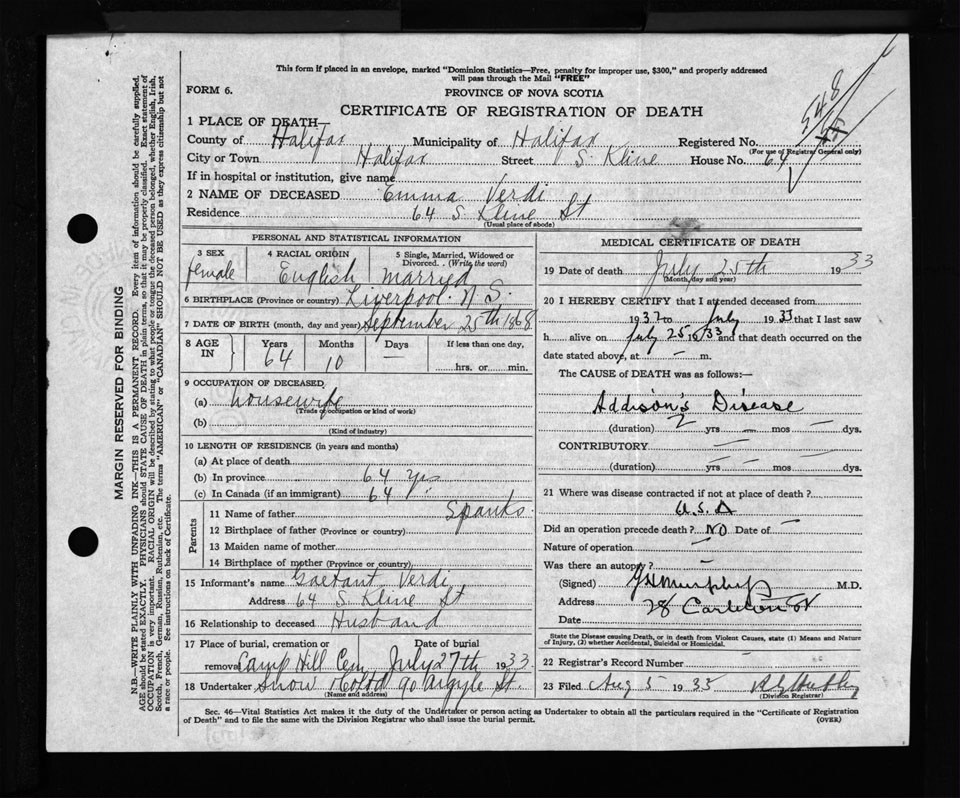 This form if placed in an envelope, marked "Dominion Statistics—Free, penalty for improper use, $300," and properly addressed
will pass through the Mail "FREE"
FORM 6.
PROVINCE OF NOVA SCOTIA
CERTIFICATE OF REGISTRATION OF DEATH
1 PLACE OF DEATH—
County of Halifax Municipality of Halifax Registered No. 548
(For use of Registrar General only)
City or Town Halifax Street S. Kline House No. 64
If in hospital or institution, give name
2 NAME OF DECEASED Emma Verdi
Residence 64 S. Kline St
(Usual place of abode)
PERSONAL AND STATISTICAL INFORMATION
3 SEX 4 RACIAL ORIGIN 5 Single, Married, Widowed or
Divorced. (Write the word)
female English Married
6 BIRTHPLACE (Province or country) Liverpool. N.S.
7 DATE OF BIRTH (month, day and year) September 25th 1868
8 AGE IN Years Months Days If less than one day,
64 10 — hrs. or min.
9 OCCUPATION OF DECEASED
(a) housewife
(Trade or occupation or kind of work)
(b)
(Kind of industry)
10 LENGTH OF RESIDENCE (in years and months)
(a) At place of death
(b) In province 64 yrs
(c) In Canada (if an immigrant) 64
Parents
11 Name of father Spanks
12 Birthplace of father (Province or country)
13 Maiden name of mother
14 Birthplace of mother (Province or country)
15 Informant's name Gaetant Verdi
Address 64 S. Kline St
16 Relationship to deceased Husband
17 Place of burial, cremation or Date of burial
removal Camp Hill Cem July 27th 1933
18 Undertaker Snow & Co Ltd 90 Argyle St.
(Name and address)
MEDICAL CERTIFICATE OF DEATH
19 Date of death July 25th 1933
(Month, day and year)
20 I HEREBY CERTIFY that I attended deceased from
1932 to July 1933 that I last saw
h alive on July 25 1933 and that death occurred on the
date stated above, at — m.
The CAUSE of DEATH was as follows:—
Addison's Disease
(duration) 2 yrs — mos — dys.
CONTRIBUTORY —
(duration) — yrs — mos — dys.
21 Where was disease contracted if not at place of death?
U.S.A
Did an operation precede death? NO Date of —
Nature of operation —
Was there an autopsy? —
(Signed) Murphy M.D.
Address 28 Carleton St
Date
State the Disease causing Death, or in death from Violent Causes, state (1) Means and Nature
of Injury, (2) whether Accidental, Suicidal or Homicidal.
22 Registrar's Record Number
23 Filed Aug 5 1933
(Division Registrar)
Sec. 46—Vital Statistics Act makes it the duty of the Undertaker or person acting as Undertaker to obtain all the particulars required in the "Certificate of Registration
of Death" and to file the same with the Division Registrar who shall issue the burial permit.
(OVER)
MARGIN RESERVED FOR BINDING
N.B.—WRITE PLAINLY WITH UNFADING INK—THIS IS A PERMANENT RECORD. Every item of information should be carefully supplied.
AGE should be stated EXACTLY. PHYSICIANS should STATE CAUSE OF DEATH in plain terms, so that it may be properly classified. Exact statement of
OCCUPATION is very important. RACIAL ORIGIN will be described by stating to what people or tongue the deceased person belonged, whether English, Irish,
Scotch, French, German, Russian, Ruthenian, etc. The terms "AMERICAN" or "CANADIAN" SHOULD NOT BE USED as they express citizenship but not
a race or people. See instructions on back of Certificate.